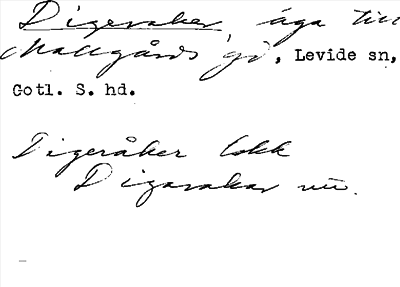 Digeraker, äga till
Mallgårds gd, Levide sn,
Gotl. S. hd.
Digeråker lokk
Digarakar nu.